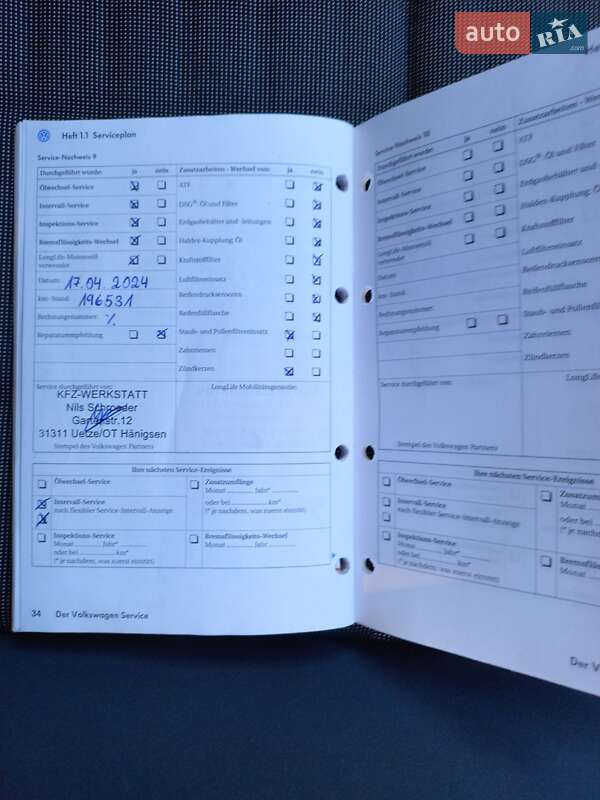 auto RIA .com
Heft 1.1 Serviceplan
Service-Nachweis 9
Durchgeführt wurde: ja nein
Zusatzarbeiten - Wechsel von: ja nein
Ölwechsel-Service
ATF
Intervall-Service
DSG®-Öl und Filter
Inspektions-Service
Erdgasbehälter und -leitungen
Bremsflüssigkeits-Wechsel
Haldex-Kupplung, Öl
LongLife-Motorenöl
verwendet
Kraftstofffilter
Datum: 17.04.2024
Luftfiltereinsatz
km-Stand: 196531
Reifendrucksensoren
Rechnungsnummer: %
Reifenfüllflasche
Reparaturempfehlung
Staub- und Pollenfiltereinsatz
Zahnriemen
Zündkerzen
Service durchgeführt von:
LongLife Mobilitätsgarantie:
KFZ-WERKSTATT
Nils Schroeder
31311 Uetze/OT Hänigsen
Stempel des Volkswagen Partners
Ihre nächsten Service-Ereignisse
Ölwechsel-Service
Zusatzumfänge
Monat Jahr*
oder bei km*
(* je nachdem, was zuerst eintritt)
Intervall-Service
nach flexibler Service-Intervall-Anzeige
Inspektions-Service
Monat Jahr*
oder bei km*
(* je nachdem, was zuerst eintritt)
Bremsflüssigkeits-Wechsel
Monat Jahr
34 Der Volkswagen Service
Service-Nachweis 10
Durchgeführt wurde: ja nein
Zusatzarbeiten - Wechsel von:
Ölwechsel-Service
ATF
Intervall-Service
DSG®-Öl und Filter
Inspektions-Service
Erdgasbehälter und
Bremsflüssigkeits-Wechsel
Haldex-Kupplung, Öl
LongLife-Motorenöl
verwendet
Kraftstofffilter
Datum:
Luftfiltereinsatz
km-Stand:
Reifendrucksensoren
Rechnungsnummer:
Reifenfüllflasche
Reparaturempfehlung
Staub- und Pollenfilter
Zahnriemen
Zündkerzen
Service durchgeführt von:
LongLife
Stempel des Volkswagen Partners
Ihre nächsten Service-Ereignisse
Ölwechsel-Service
Zusatzumfänge
Monat
oder bei
(* je nachdem,
Intervall-Service
nach flexibler Service-Intervall-Anzeige
Inspektions-Service
Monat Jahr*
oder bei km*
(* je nachdem, was zuerst eintritt)
Bremsflüssigkeits
Monat
Der V